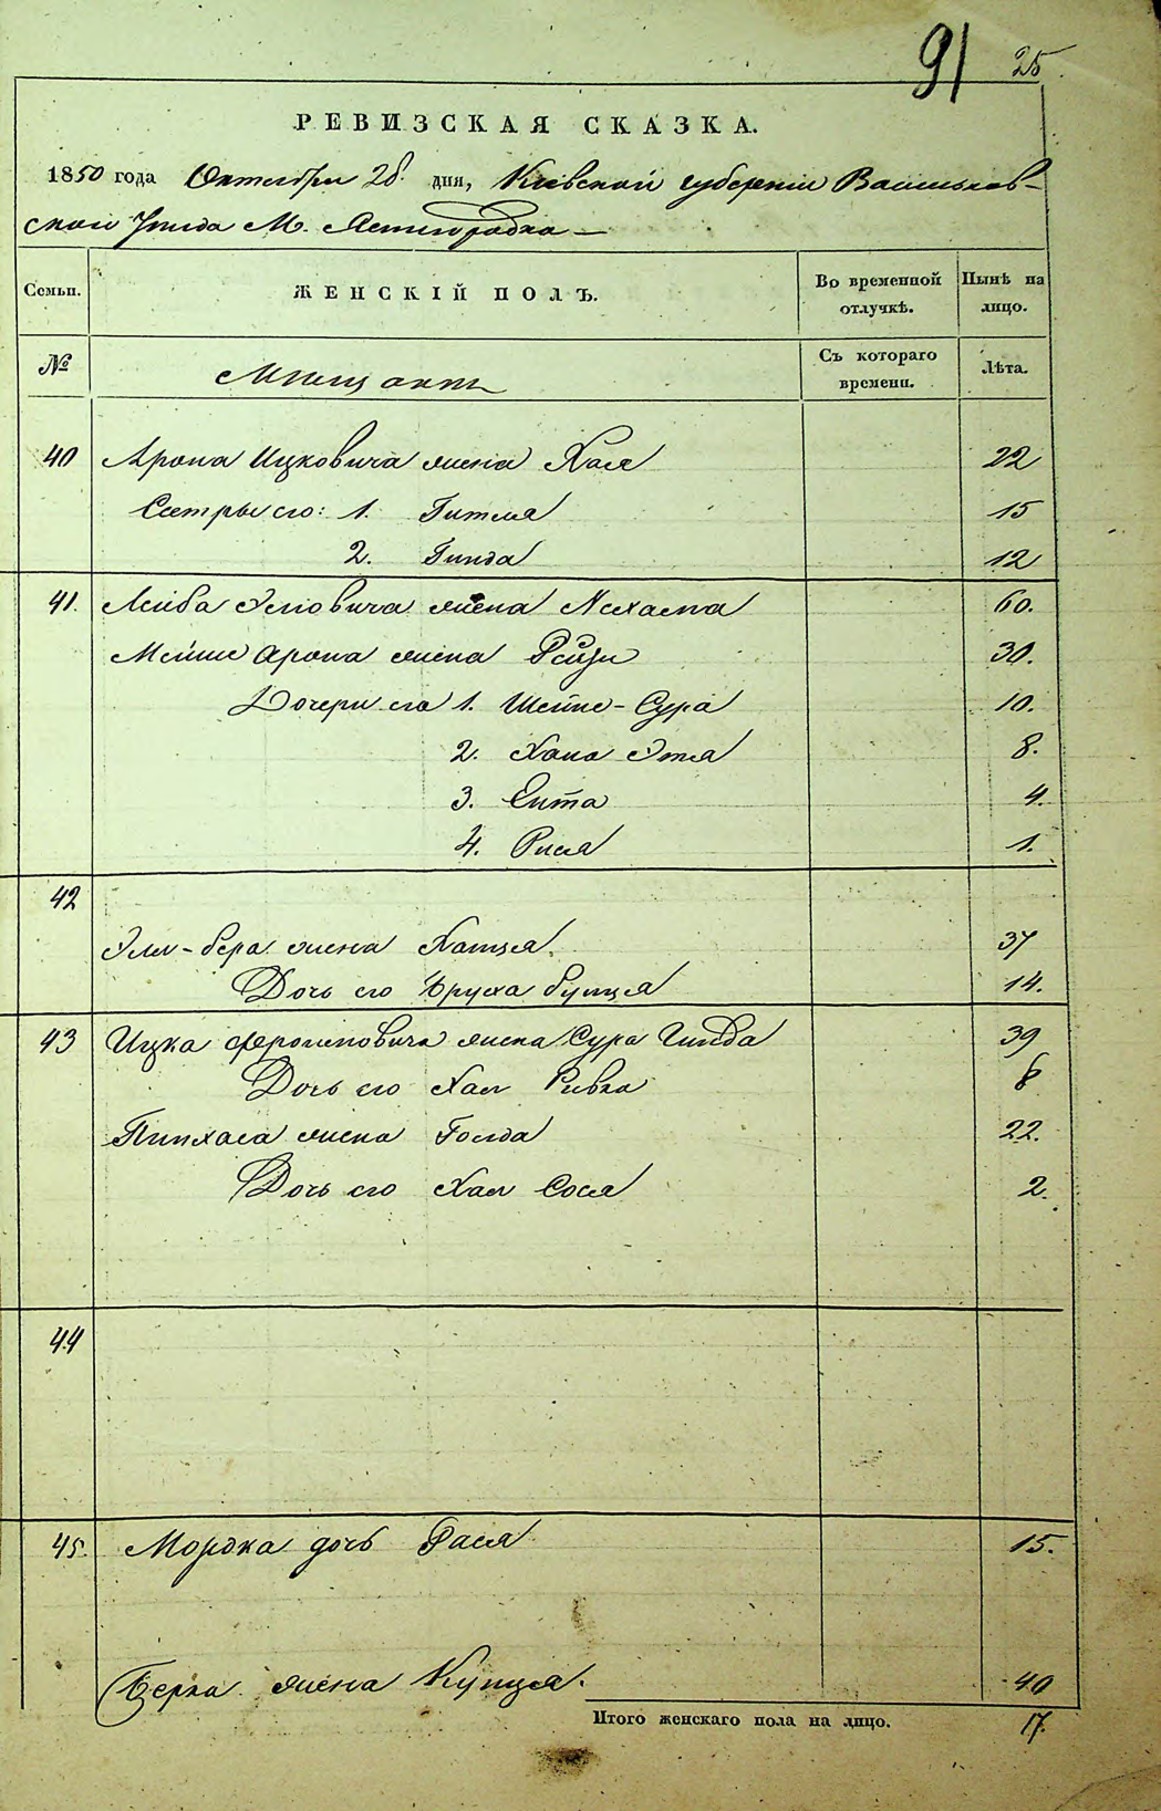 91 25
РЕВИЗСКАЯ СКАЗКА.
1850 года Октября 28. дня, Кіевской губерніи Васильков-
ского Уѣзда М. Ясногородка —
Семьи. ЖЕНСКІЙ ПОЛЪ. Во временной отлучкѣ. Нынѣ на лицо.
№ Мѣщане Съ котораго времени. Лѣта.
40 Арона Ицковича жена Хая 22
Сестры его: 1. Гитля 15
2. Гинда 12
41. Лейба Эльовича жена Нехама 60.
Мейше Арона жена Рейзи 30.
Дочери его 1. Шейне-Сура 10.
2. Хана Этя 8.
3. Ента 4.
4. Рися 1.
42
Эли-бера жена Хатця. 37
Дочь его Бруха бупця 14.
43 Ицка Фроимовича жена Сура Гинда 39
Дочь его Хая Ривка 8
Пинхаса жена Голда 22.
Дочь его Хая Сося 2.
44
45. Мордка дочь Рася 15.
Берка жена Купця. 40
Итого женскаго пола на лицо. 17.